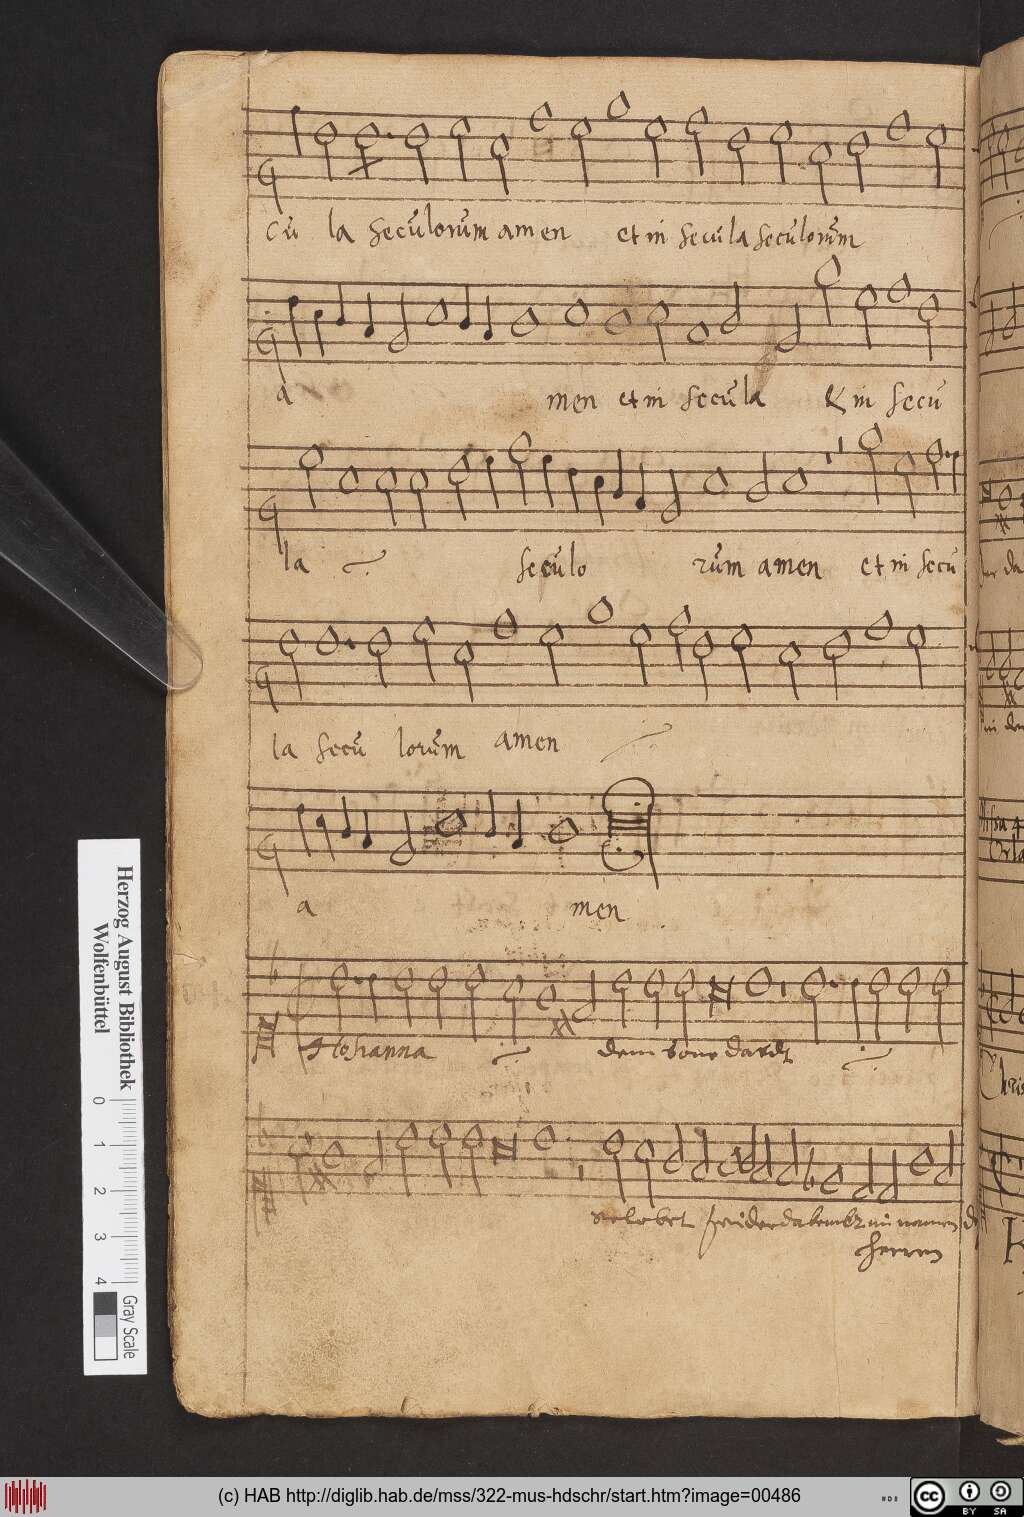 cū la secūlorūm amen et in secūla secūlorūm
a men et in secūla & in secū
la secūlo rūm amen et in secū
la secū lorūm amen
a men
Hosianna dem sone davidt
gelobet sei der da kombt im namen
herren
Herzog August Bibliothek
Wolfenbüttel
0 1 2 3 4
Gray Scale
(c) HAB http://diglib.hab.de/mss/322-mus-hdschr/start.htm?image=00486
cc BY SA